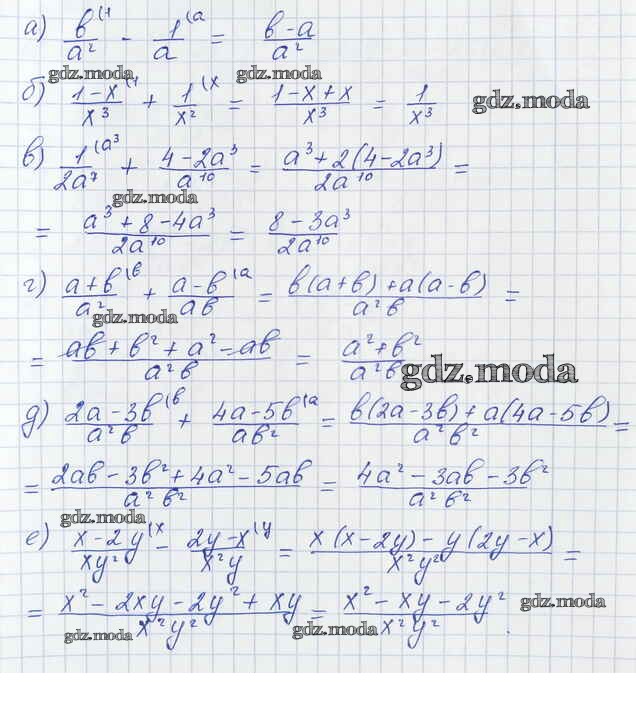 а) b⁽¹/a² - 1⁽ᵃ/a = b-a/a²
gdz.moda gdz.moda
б) 1-x⁽¹/x³ + 1⁽ˣ/x² = 1-x+x/x³ = 1/x³ gdz.moda
в) 1⁽ᵃ³/2a⁷ + 4-2a³/a¹⁰ = a³+2(4-2a³)/2a¹⁰ =
gdz.moda
= a³+8-4a³/2a¹⁰ = 8-3a³/2a¹⁰
г) a+b⁽ᵇ/a² + a-b⁽ᵃ/ab = b(a+b)+a(a-b)/a²b =
gdz.moda
= ab+b²+a²-ab/a²b = a²+b²/a²b gdz.moda
д) 2a-3b⁽ᵇ/a²b + 4a-5b⁽ᵃ/ab² = b(2a-3b)+a(4a-5b)/a²b² =
= 2ab-3b²+4a²-5ab/a²b² = 4a²-3ab-3b²/a²b²
gdz.moda
е) x-2y⁽ˣ/xy² - 2y-x⁽ʸ/x²y = x(x-2y)-y(2y-x)/x²y² =
= x²-2xy-2y²+xy/x²y² = x²-xy-2y²/x²y² gdz.moda
gdz.moda gdz.moda